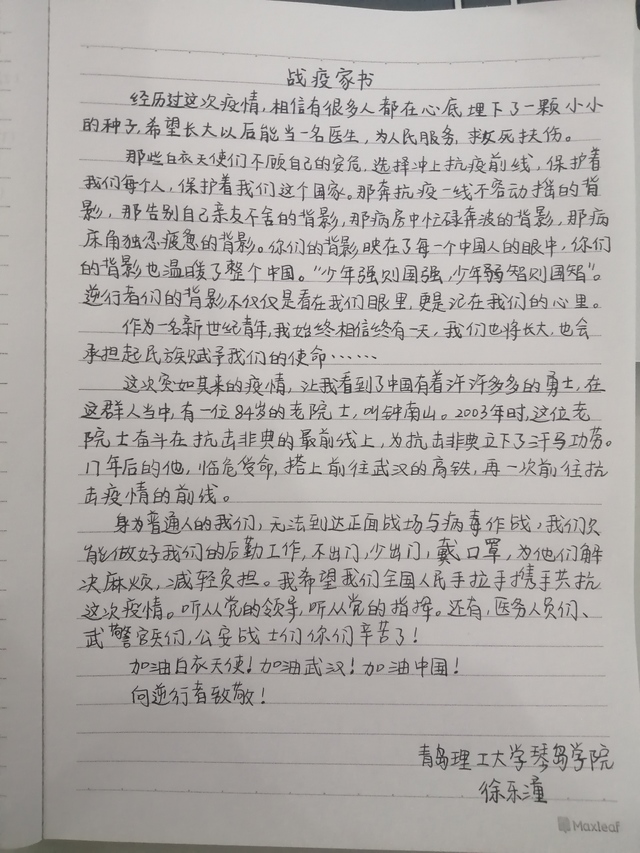 战疫家书
经历过这次疫情,相信有很多人都在心底埋下了一颗小小
的种子,希望长大以后能当一名医生,为人民服务,救死扶伤。
那些白衣天使们不顾自己的安危,选择冲上抗疫前线,保护着
我们每个人,保护着我们这个国家。那奔抗疫一线不容动摇的背
影,那告别自己亲友不舍的背影,那病房中忙碌奔波的背影,那病
床角独忍疲惫的背影。你们的背影映在了每一个中国人的眼中,你们
的背影也温暖了整个中国。“少年强则国强,少年弱智则国智”。
逆行者们的背影不仅仅是看在我们眼里,更是记在我们的心里。
作为一名新世纪青年,我始终相信终有一天,我们也将长大,也会
承担起民族赋予我们的使命······
这次突如其来的疫情,让我看到了中国有着许许多多的勇士,在
这群人当中,有一位84岁的老院士,叫钟南山。2003年时,这位老
院士奋斗在抗击非典的最前线上,为抗击非典立下了汗马功劳。
17年后的他,临危受命,搭上前往武汉的高铁,再一次前往抗
击疫情的前线。
身为普通人的我们,无法到达正面战场与病毒作战,我们只
能做好我们的后勤工作,不出门,少出门,戴口罩,为他们解
决麻烦,减轻负担。我希望我们全国人民手拉手携手共抗
这次疫情。听从党的领导,听从党的指挥。还有,医务人员们、
武警官兵们,公安战士们你们辛苦了!
加油白衣天使!加油武汉!加油中国!
向逆行者致敬!
青岛理工大学琴岛学院
徐乐潼
Maxleaf